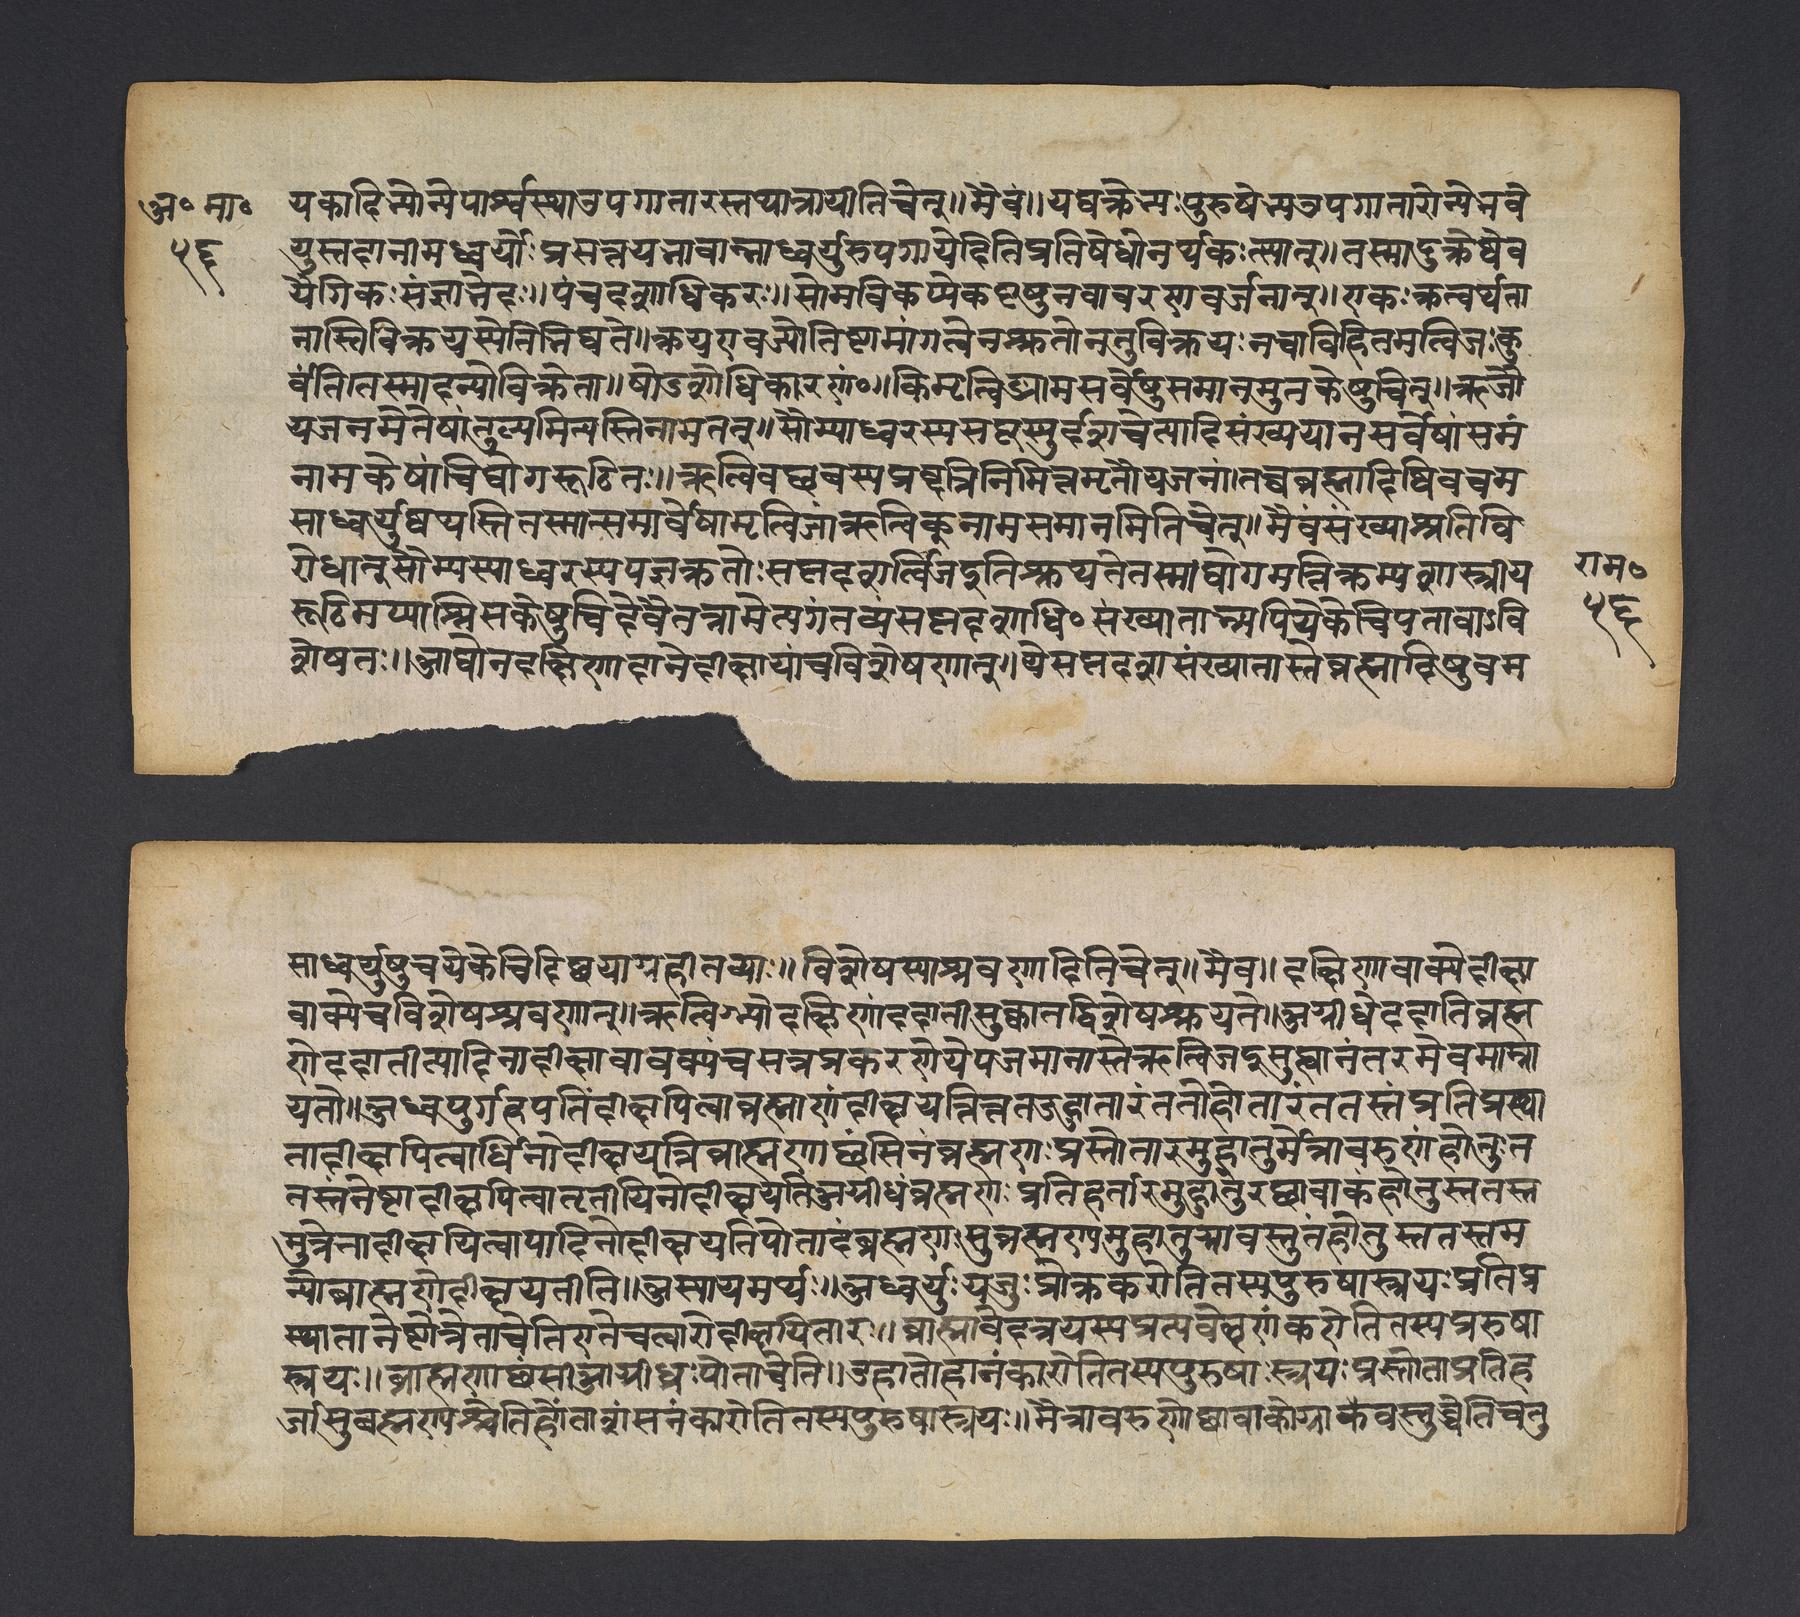 अ॰ मा॰
५६
यकादिभ्योन्येपार्श्वस्थाउपगातारस्तथात्रापीतिचेत्॥मैवं॥यद्यक्तेभ्यःपुरुषेभ्यउपगातारोन्येभवे
युस्तदानीमध्वर्योःप्रसत्त्कयभावान्नाध्वर्युरुपगायेदितिप्रतिषेधोनर्थकःस्यात्॥तस्मादुक्तेष्वेव
यौगिकःसंज्ञाभेदः॥पंचदशाधिकरः॥सोमविक्रय्येकएषुनवावरणवर्जनात्॥एकःक्रत्वर्थता
नास्तिविक्रयस्येतिभिद्यते॥क्रयएवज्योतिष्टोमांगत्वेनश्रुतोनतुविक्रयःनचाविहितमृत्विजःकु
र्वंति।तस्मादन्योविक्रेता॥षोडशोधिकारणं॰॥किमृत्विङ्नामसर्वेषुसमानमुतकेषुचित्॥ऋतौ
यजनमेतेषांतुल्यमित्यस्तिनामतत्॥सौम्याध्वरस्यसप्तस्युर्दशचेत्यादिसंख्ययानसर्वेषांसमं
नामकेषांचिद्योगरूढितः॥ऋत्विक्छब्दस्यप्रवृत्तिनिमित्तमृतौयजनं।तच्चब्रह्मादिष्विवचम
साध्वर्युष्वप्यस्तितस्मात्समासर्वेषामृत्विजांऋत्विङ्नामसमानमितिचेत्॥मैवंसंख्याश्रतिवि
रोधात्सौम्यस्याध्वरस्ययज्ञक्रतोःसप्तदशर्त्विजइतिश्रूयतेतस्माद्योगमतिक्रम्यशास्त्रीय
रूढिमप्याश्रित्यकेषुचिदेवैतन्नामेत्यगंतव्यंसप्तदशाधि॰संख्यातात्म्यपियेकेचिपतावाऽवि
शेषतः॥आद्योनदक्षिणादानेदीक्षायांचविशेषणात्॥येसप्तदशसंख्यातास्तेब्रह्मादिषुचम
राम॰
५६
साध्वर्युषुचयेकेचिदिच्छयाग्रहीतव्याः॥विशेषस्याश्रवणादितिचेत्॥मैव॥दक्षिणावाक्येदीक्षा
वाक्येचविशेषश्रवणात्॥ऋत्विग्भ्योदक्षिणांददातीत्युक्त्वातद्विशेषश्रूयते॥अग्नीधेददातिब्रह्म
णेददातीत्यादिनादीक्षावावक्यंचसत्रप्रकरणेयेयजमानास्तेऋत्विजइत्युत्क्वानंतरमेवमाम्ना
यतो॥अध्वर्युर्गृहपतिंदीक्षयित्वाब्रह्माणंदीक्षयतितततउद्गातारंततोहोतारंततस्तंप्रतिप्रस्था
तादीक्षयित्वार्धिनोदीक्षयतिब्राह्मणाछंसिनंब्रह्मणःप्रस्तोतारमुद्गातुर्मैत्रावरुणंहोतुःत
तस्तंनेष्टादीक्षयित्वातृतीयिनोदीक्षयतिअग्नीधंब्रह्मणःप्रतिहर्तारमुद्गातुरछावाकंहोतुस्ततस्त
मुन्नेतादीक्षयित्वापादिनोदीक्षयतिपोतारंब्रह्मणःसुब्रह्मण्यमुद्गातुर्ग्रावस्तुतंहोतुस्ततस्तम
न्योब्राह्मणोदीक्षयतीति॥अस्यायमर्थः॥अध्वर्युःयजुःप्रोक्तकरोतितस्यपुरुषास्त्रयःप्रतिप्र
स्थातानेष्टोन्नेताचेतिएतेचत्वारोदीक्षयितारः॥ब्राह्मावेदत्रयस्यप्रत्यवेक्षणंकरोतितस्यप्ररुषा
स्त्रयः॥ब्राह्मणाछंसीआग्नीध्रःपोताचेति॥उद्गातोद्गानंकारोतितस्यपुरुषाःस्त्रयःप्रस्तोताप्रतिह
र्जासुब्रह्मण्यश्चेतिहोताशंसनंकारोतितस्यपुरुषास्त्रयः॥मैत्रावरुणोछावाकोग्राकवस्तुच्चेतिचतु